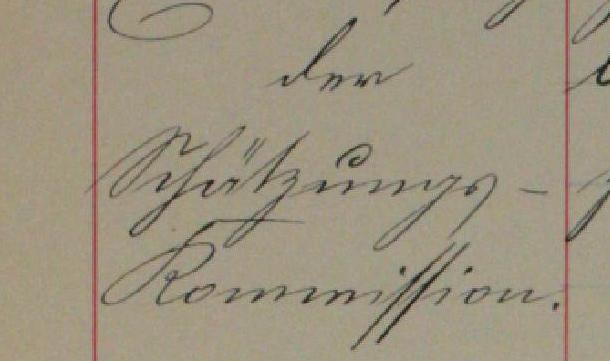 der
Schätzungs-
Kommission.